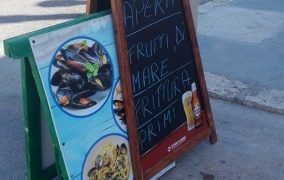 APERTI
FRUTTI DI
MARE
FRITTURA
PRIMI